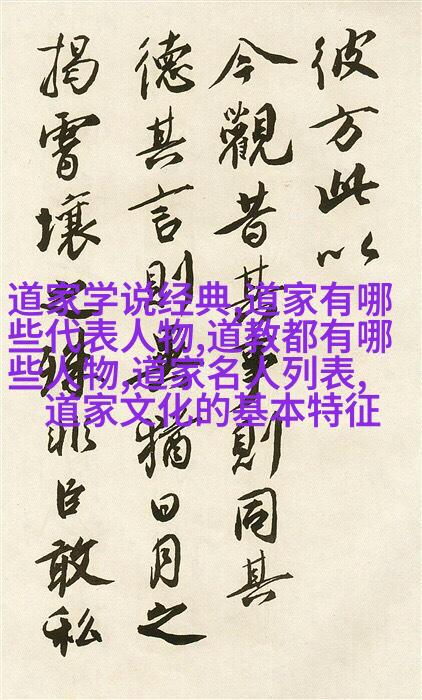 彼方此以
今觀昔其事則同其
德其言則猶日月之
揭霄壤之殊非臣敢私
道家学说经典,道家有哪
些代表人物,道教都有哪
些人物,道家名人列表,
道家文化的基本特征